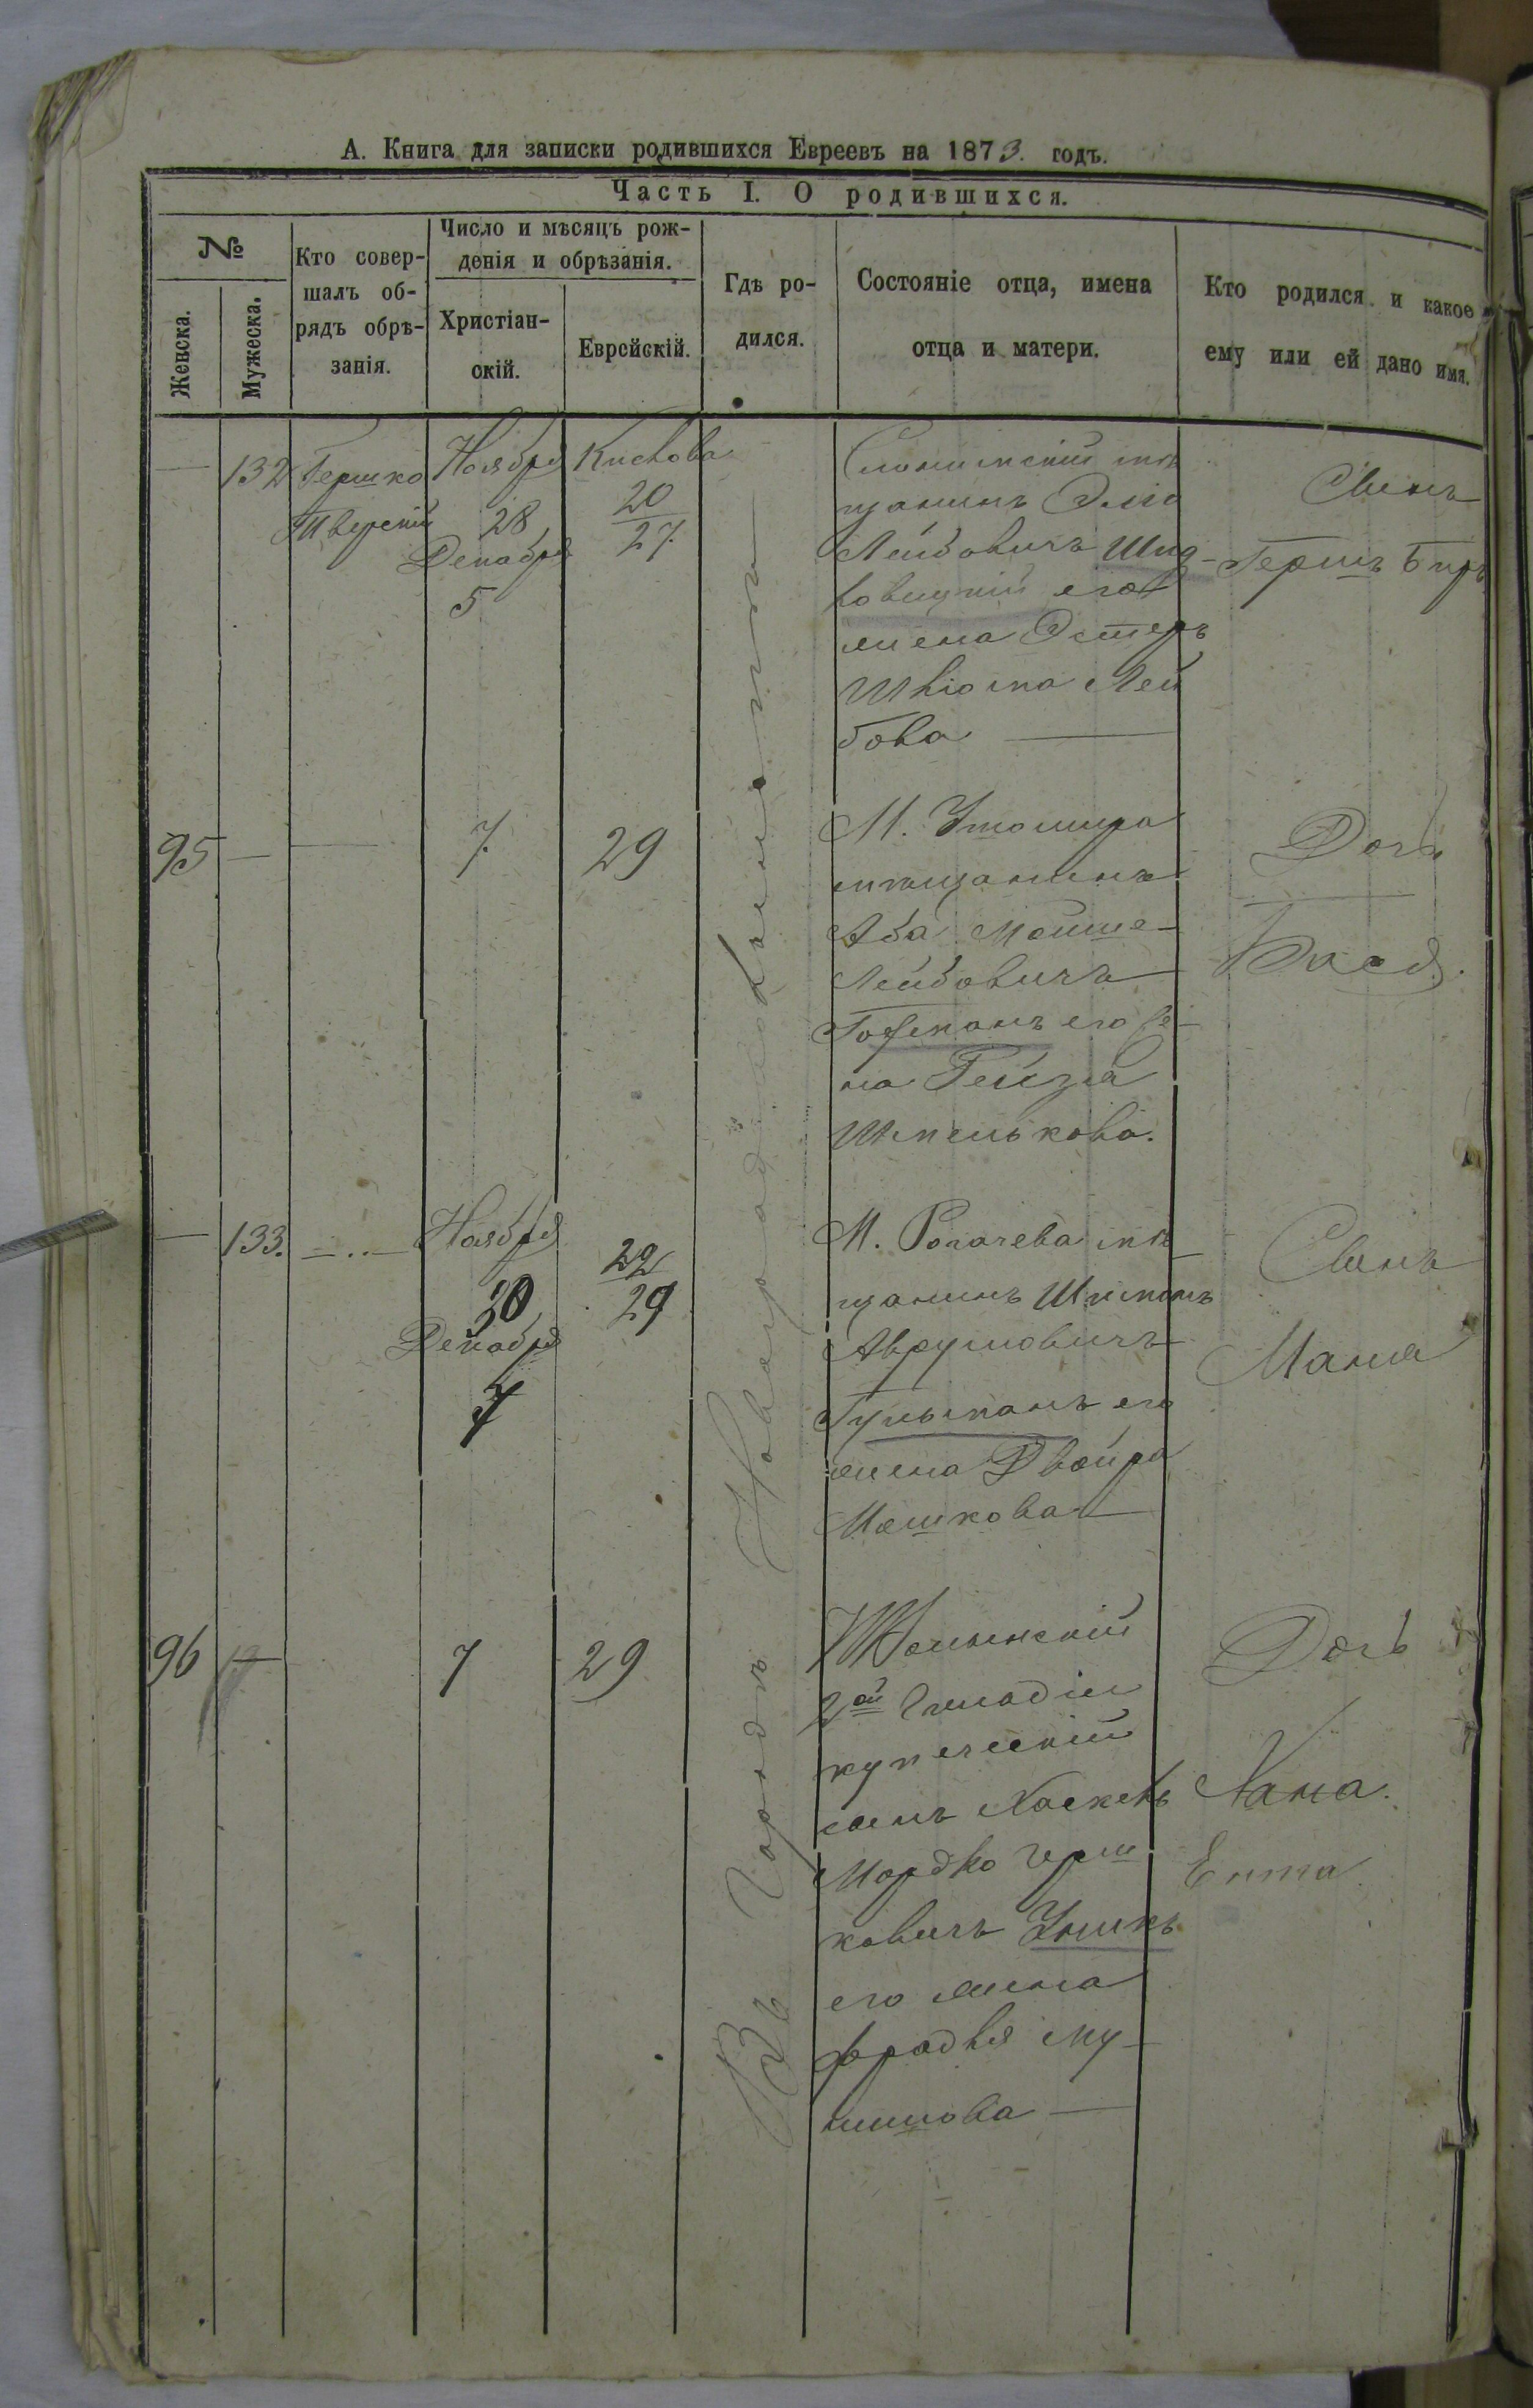 А. Книга для записки родившихся Евреевъ на 1873. годъ.
Часть I. О родившихся.
№
Женска.
Мужеска.
Кто совершалъ об-
рядъ обрѣ-
занія.
Число и мѣсяцъ рож-
денія и обрѣзанія.
Христіан-
скій.
Еврейскій.
Гдѣ ро-
дился.
Состояніе отца, имена
отца и матери.
Кто родился и какое
ему или ей дано имя.
—
132
Гершко
Тверскій
Ноября
28
Декабря
5
Кислова
20
27
Въ городѣ Новоградволынскѣ
Слонимскій мѣ
щанинъ Эліо
Лейбовичъ Шид-
ловицкій его
жена Эстеръ
Лей
бова
Сынъ
Гершъ Беръ
95
—
7
29
М.
мѣщанинъ
Аба Мойше-
Лейбовичъ
Гофманъ его же-
на Рейзя
Дочь
Бася.
—
133.
Ноября
30
Декабря
7
22
29
М. Рогачева мѣ-
щанинъ
Аврумовичъ
Гультманъ его
жена Двойра
Мошкова
Сынъ
Маня
96
—
7
29
Волынскій
2ой Гильдіи
купеческій
сынъ Хаскель
Мордко Герш
ковичъ
его жена
Фрадля Му-
нишова
Дочь
Хана.
Ента